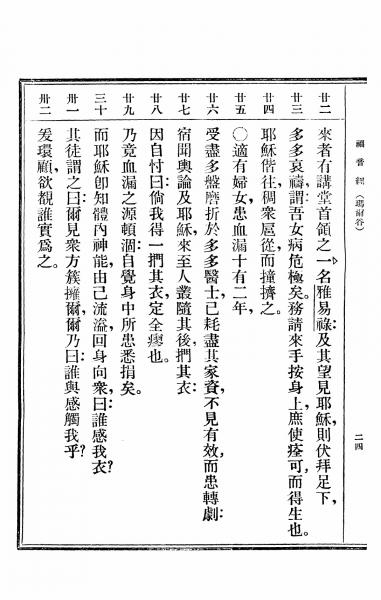 福音經(瑪爾谷)
二四
廿二 來者有講堂首領之一名雅易祿:及其望見耶穌,則伏拜足下,
廿三 多多哀禱:謂吾女病危極矣。務請來手按身上,庶使痊可,而得生也。
廿四 耶穌偕往,稠衆扈從,而撞擠之。
廿五 〇適有婦女,患血漏十有二年,
廿六 受盡多多盤磨折於多多醫士,已耗盡其家資,不見有效,而患轉劇:
廿七 宿聞輿論及耶穌,來至人叢,隨其後,捫其衣:
廿八 因自忖曰:倘我得一捫其衣,定全瘳也。
廿九 乃竟血漏之源頓涸:自覺身中所患悉捐矣。
三十 而耶穌卽知體內神能,由己流溢,回身向衆,曰:誰感我衣?
卅一 其徒謂之曰:爾見衆方簇擁爾,爾乃曰:誰與感觸我乎?
卅二 爰環顧,欲覩誰實爲之。